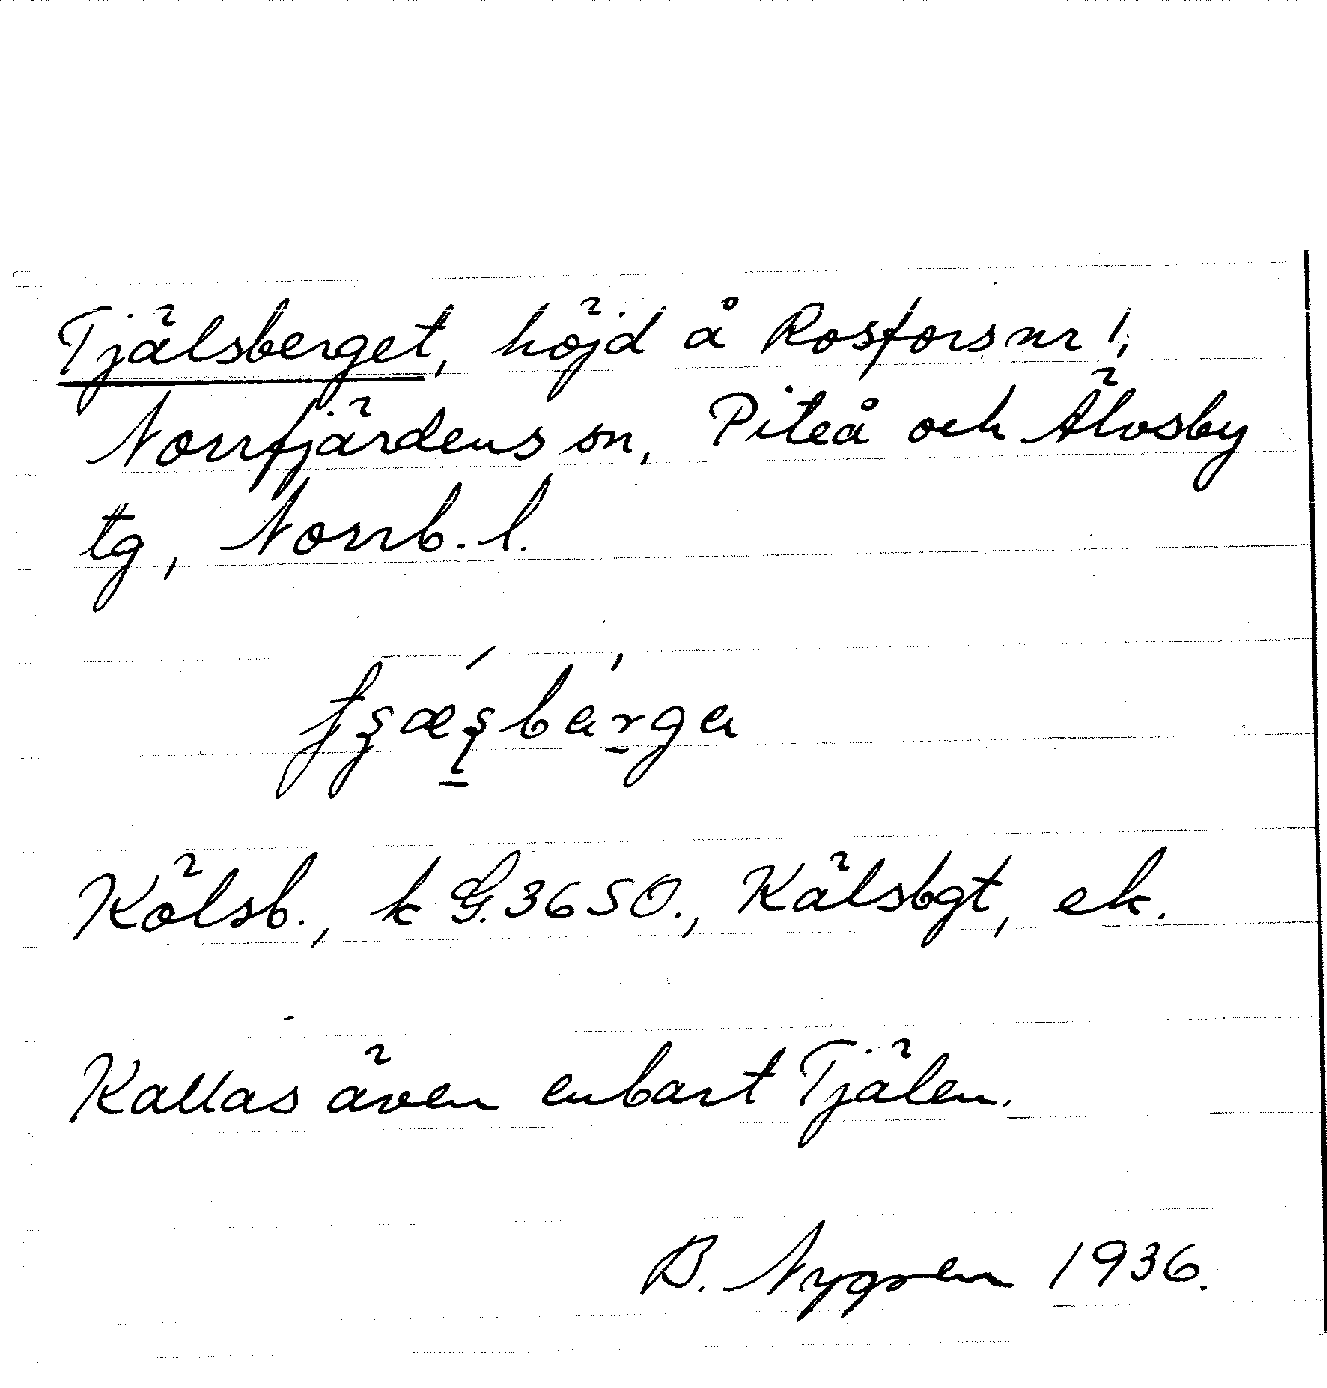 Tjälsberget, höjd å Rosfors nr 1,
Norrfjärdens sn, Piteå och Älvsby
tg, Norrb. l.
Kölsb., k G.36SO., Kälsbgt, ek.
Kallas även enbart Tjälen.
B. Nygren 1936.